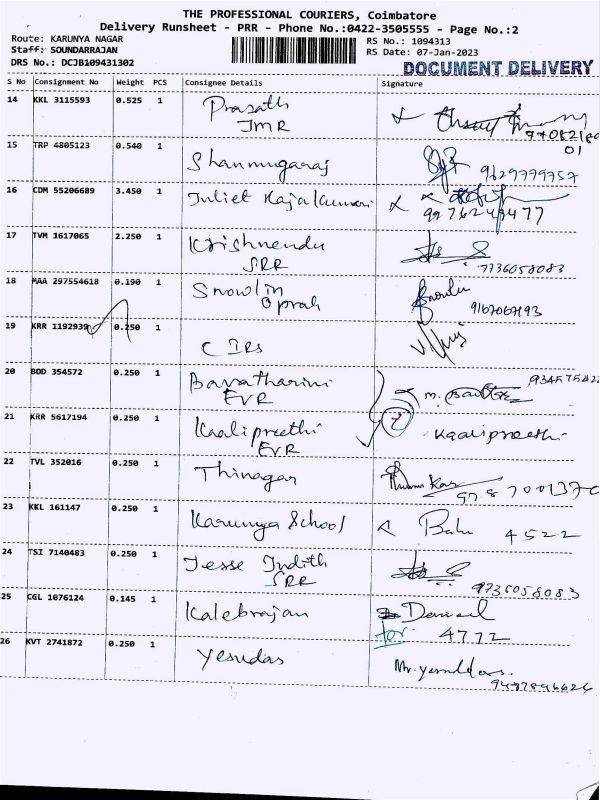 THE PROFESSIONAL COURIERS, Coimbatore
Delivery Runsheet - PRR - Phone No.:0422-3505555 - Page No.:2
Route: KARUNYA NAGAR
Staff: SOUNDARRAJAN
DRS No.: DCJB109431302
RS No.: 1094313
RS Date: 07-Jan-2023
DOCUMENT DELIVERY
S No Consignment No Weight PCS Consignee Details Signature
14 KKL 3115593 0.525 1 Prasath
JMR
01
15 TRP 4805123 0.540 1 Shanmugaraj 9629779757
16 CDM 55206689 3.450 1 Juliet Rajakumari
17 TVM 1617065 2.250 1 Krishnendu
SRR 7736058083
18 MAA 297554618 0.190 1 Snowlin
Oprah 9167067193
19 KRR 1192939 0.250 1
C IRs
20 BOD 354572 0.250 1 Bavatharini
EVR
21 KRR 5617194 0.250 1 Kaalipreethi Kaalipreethi
EVR
22 TVL 352016 0.250 1 Thinagar
23 KKL 161147 0.250 1 Karunya School Babu 4522
24 TSI 7140483 0.250 1 Jesse Judith
SRR 9736058083
25 CGL 1076124 0.145 1 Kalebrajan
for 4772
26 KVT 2741872 0.250 1 Yesudas